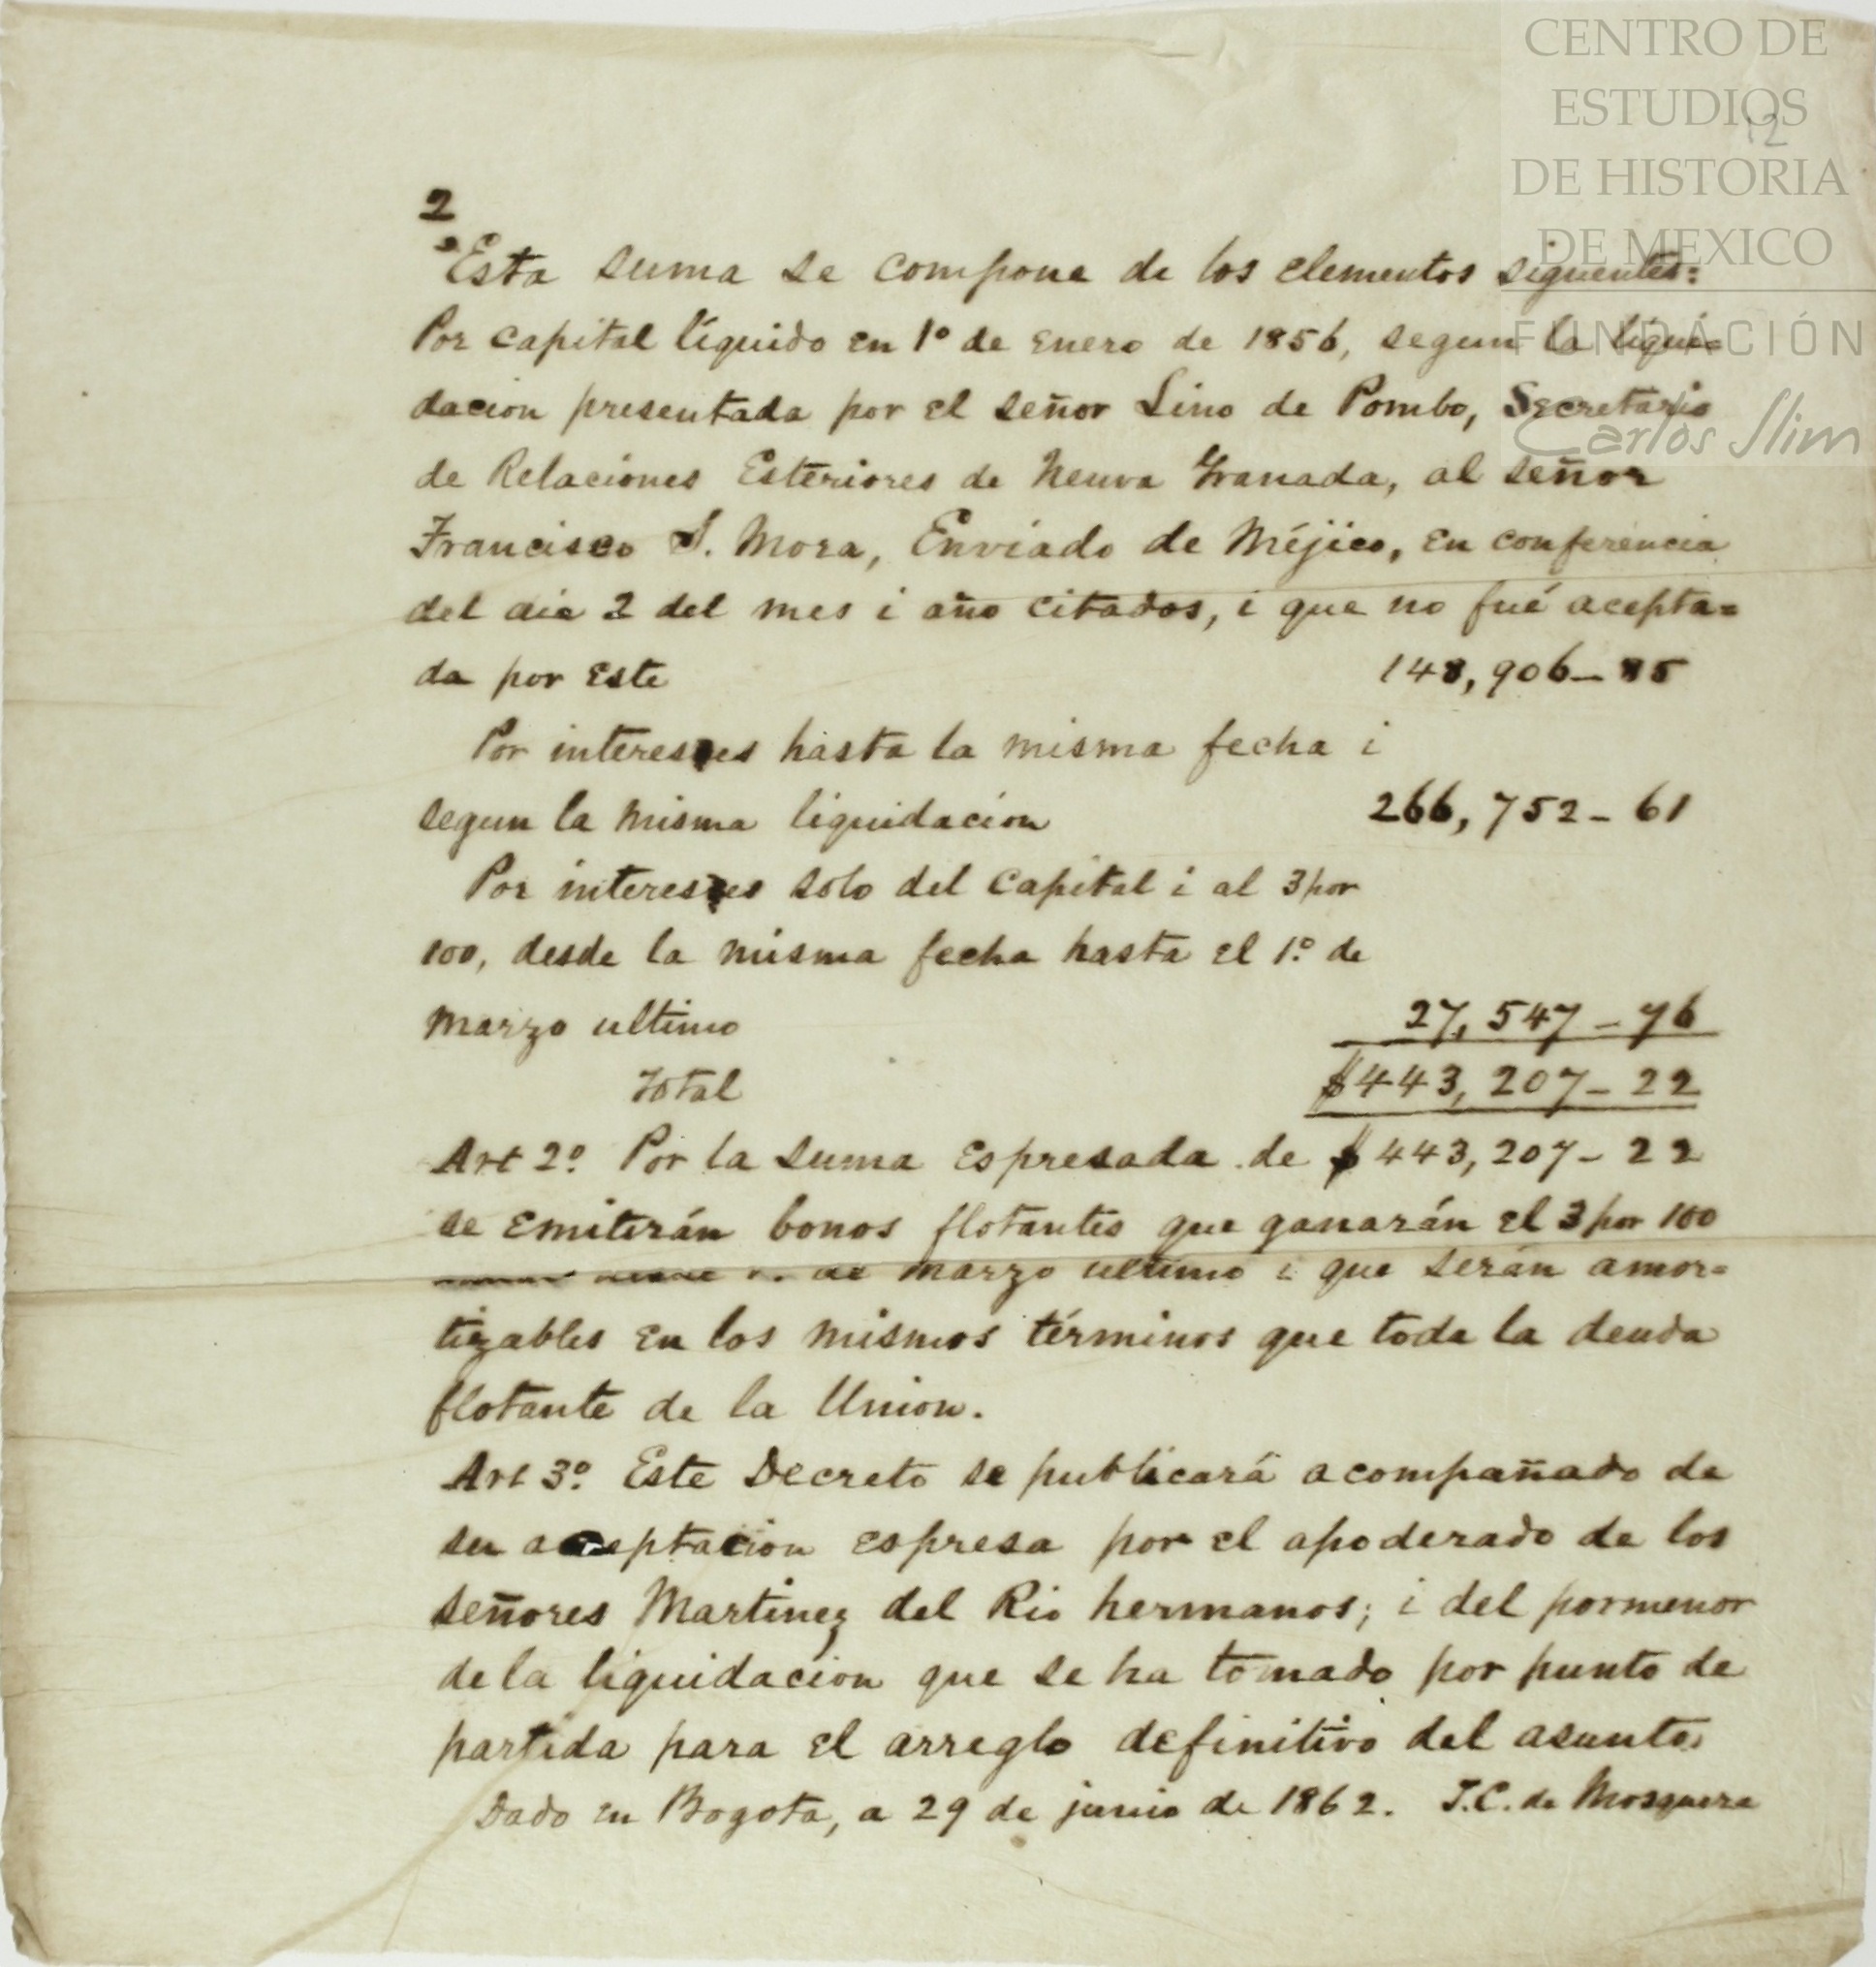 CENTRO DE
ESTUDIOS
DE HISTORIA
DE MEXICO
FUNDACIÓN
Carlos Slim
12
2
Esta suma se compone de los elementos siguientes:
Por capital líquido en 1º de enero de 1856, segun la liqui=
dacion presentada por el señor Lino de Pombo, Secretario
de Relaciones Esteriores de Neuva Granada, al señor
Francisco S. Mora, Enviado de Méjico, en conferencia
del dia 2 del mes i año citados, i que no fué acepta=
da por este 148,906-85
Por intereses hasta la misma fecha i
segun la misma liquidacion 266,752-61
Por intereses solo del capital i al 3 por
100, desde la misma fecha hasta el 1º de
marzo ultimo 27,547-76
Total $443,207-22
Art 2º Por la suma espresada de $443,207-22
se emitirán bonos flotantes que ganarán el 3 por 100
desde 1º de marzo ultimo i que serán amor=
tizables en los mismos términos que toda la deuda
flotante de la Union.
Art 3º Este Decreto se publicará acompañado de
su aceptacion espresa por el apoderado de los
señores Martinez del Rio hermanos; i del pormenor
de la liquidacion que se ha tomado por punto de
partida para el arreglo definitivo del asunto.
Dado en Bogota, a 29 de junio de 1862. T.C. de Mosquera